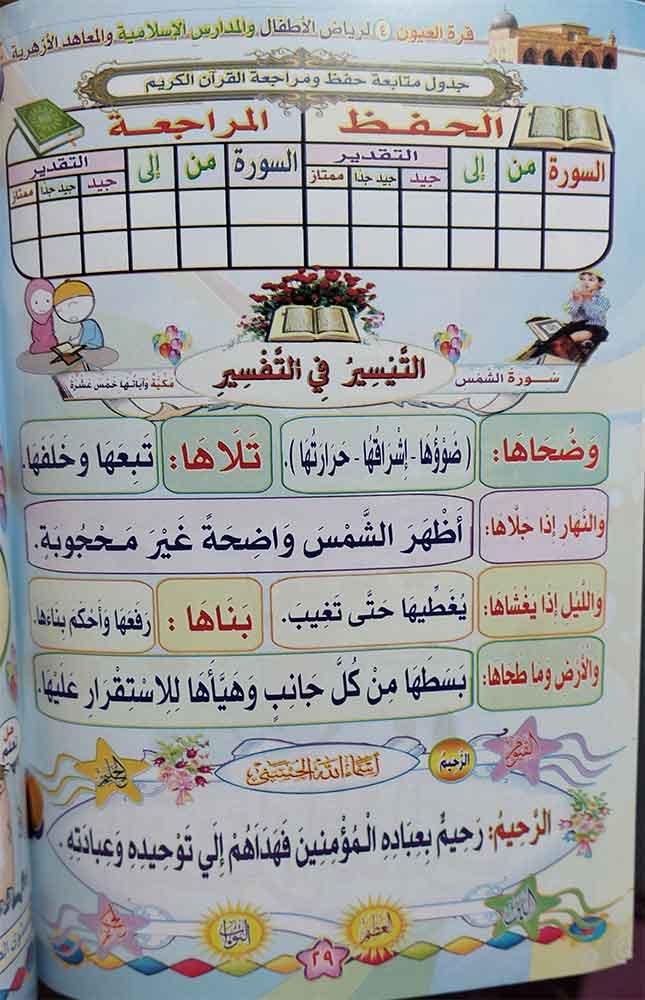 قرة العيون ٤ لرياض الأطفال والمدارس الإسلامية والمعاهد الأزهرية
جدول متابعة حفظ ومراجعة القرآن الكريم
الحفظ المراجعة
السورة من إلى التقدير السورة من إلى التقدير
جيد جيد جدا ممتاز جيد جيد جدا ممتاز
التَّيْسِيرُ فِي التَّفْسِيرِ
سورة الشمس مَكِّيَّة وَآيَاتُهَا خَمْسَ عَشْرَةَ
وَضُحَاهَا: (ضَوْؤُهَا - إِشْرَاقُهَا - حَرَارَتُهَا). تَلَاهَا: تَبِعَهَا وَخَلَفَهَا.
والنَّهَارِ إِذَا جَلَّاهَا: أَظْهَرَ الشَّمْسَ وَاضِحَةً غَيْرَ مَحْجُوبَةٍ.
واللَّيْلِ إِذَا يَغْشَاهَا: يُغَطِّيهَا حَتَّى تَغِيبَ. بَنَاهَا: رَفَعَهَا وَأَحْكَمَ بِنَاءَهَا.
والْأَرْضِ وَمَا طَحَاهَا: بَسَطَهَا مِنْ كُلِّ جَانِبٍ وَهَيَّأَهَا لِلِاسْتِقْرَارِ عَلَيْهَا.
القيوم الرَّحِيمُ أسماء الله الحسنى الحليم
الرَّحِيمُ: رَحِيمٌ بِعِبَادِهِ الْمُؤْمِنِينَ فَهَدَاهُمْ إِلَي تَوْحِيدِهِ وَعِبَادَتِهِ.
العظيم التواب
٢٩